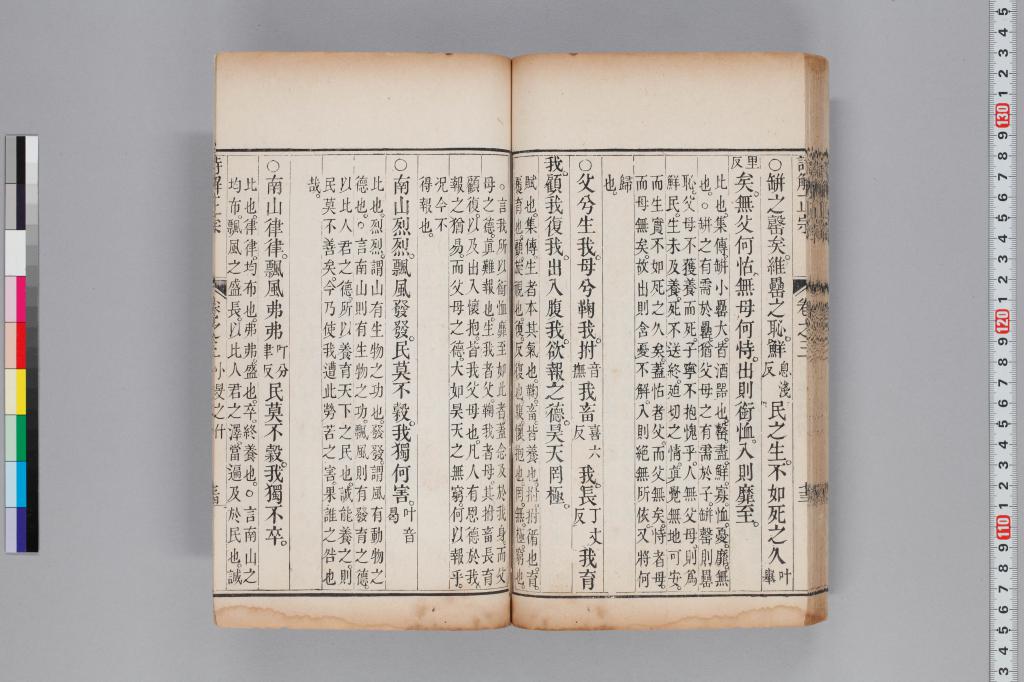 詩解正宗 卷之三
○缾之罄矣。維罍之恥。鮮息淺反民之生。不如死之久叶舉
里反矣。無父何怙。無母何恃。出則銜恤。入則靡至。
比也。集傳。缾小罍大。皆酒器也。罄盡。鮮寡。恤憂。靡無
也。○缾之有需於罍。猶父母之有需於子。缾罄則罍
恥。父母不獲養而死。子寧不抱愧乎。人無父母。則爲
鮮民。生未及養。死不送終。迫切之情。直覺無地可安。
而生實不如死之久矣。蓋怙者父。而父無矣。恃者母。
而母無矣。故出則含憂不解。入則絕無所依。又將何
歸也。
○父兮生我。母兮鞠我。拊音撫我畜喜六反我。長丁丈反我育
我。顧我復我。出入腹我。欲報之德。昊天罔極。
賦也。集傳。生者本其氣也。鞠畜皆養也。拊拊循也。育
覆育也。顧旋視也。復反復也。腹懷抱也。罔無。極窮也。
○言我所以銜恤靡至如此者。蓋念及於我身。而父
母之德。眞難報也。生我者父。鞠我者母。其拊畜長育
顧復。以及出入懷抱。皆我父母也。凡人有恩德於我。
報之猶易。而父母之德。大如昊天之無窮。何以報乎。
況今不
得報也。
○南山烈烈。飄風發發。民莫不穀。我獨何害。叶音曷
比也。烈烈。謂山有生物之功也。發發。謂風有動物之
德也。○言南山則有生物之功。飄風則有發育之德。
以比人君之德。所以養育天下之民也。誠能養之。則
民莫不善矣。今乃使我遭此勞苦之害。果誰之咎也
哉。
○南山律律。飄風弗弗。叶分聿反民莫不穀。我獨不卒。
比也。律律。均布也。弗弗。盛也。卒終養也。○言南山之
均布。飄風之盛長。以比人君之澤。當遍及於民也。誠
詩解正宗 卷之三 小旻之什